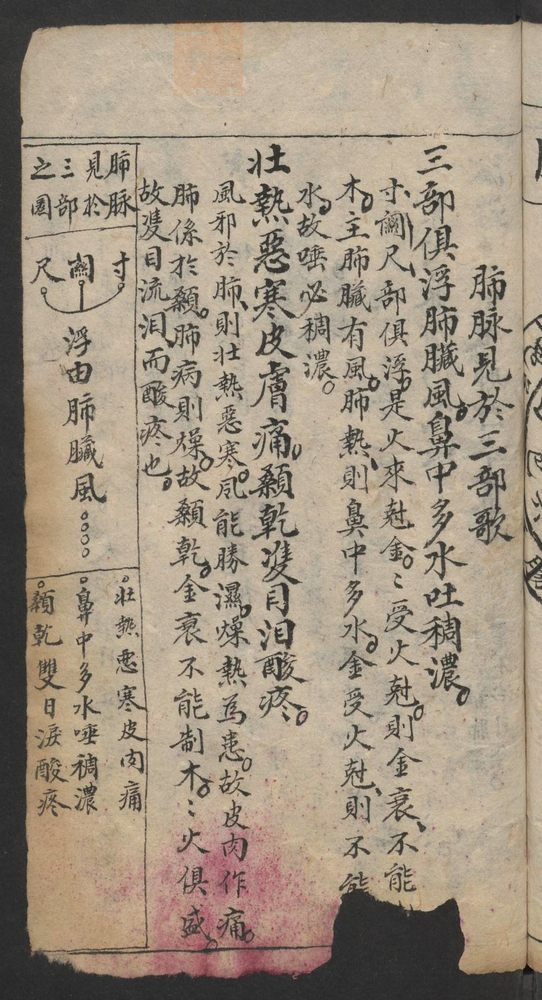 肺脉見於三部歌
三部俱浮肺臟風。鼻中多水吐稠濃。
寸關尺部俱浮。是火來尅金。〻受火尅。則金衰、不能
木。主肺臟有風。肺熱、則鼻中多水。金受火尅、則不能
水。故唾必稠濃。
壮熱惡寒皮膚痛。顙乾雙目泪酸疼。
風邪於肺、則壮熱惡寒。風能勝濕。燥熱為患。故皮肉作痛。
肺係於顙。肺病則燥。故顙乾。金衰不能制木。〻火俱盛。
故雙目流泪而酸疼也。
肺脉
見於
三部
之圖
寸
關
尺
浮由肺臟風。。。。
。壮熱惡寒皮肉痛
。鼻中多水唾稠濃
。顙乾雙目淚酸疼